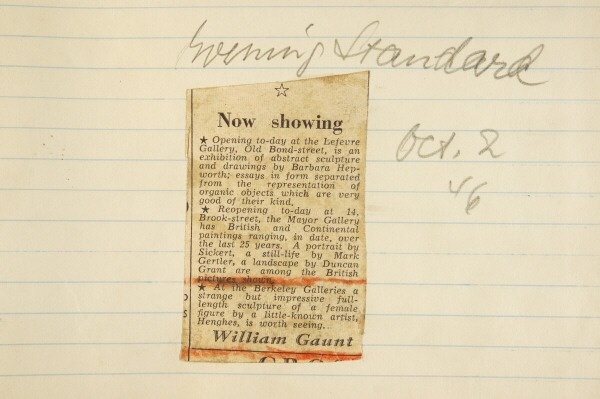 Evening Standard
Oct. 2
46
☆
Now showing
★ Opening to-day at the Lefevre
Gallery, Old Bond-street, is an
exhibition of abstract sculpture
and drawings by Barbara Hep-
worth; essays in form separated
from the representation of
organic objects which are very
good of their kind.
★ Reopening to-day at 14,
Brook-street, the Mayor Gallery
has British and Continental
paintings ranging, in date, over
the last 25 years. A portrait by
Sickert, a still-life by Mark
Gertler, a landscape by Duncan
Grant are among the British
pictures shown.
★ At the Berkeley Galleries a
strange but impressive full-
length sculpture of a female
figure by a little-known artist,
Henghes, is worth seeing.
William Gaunt